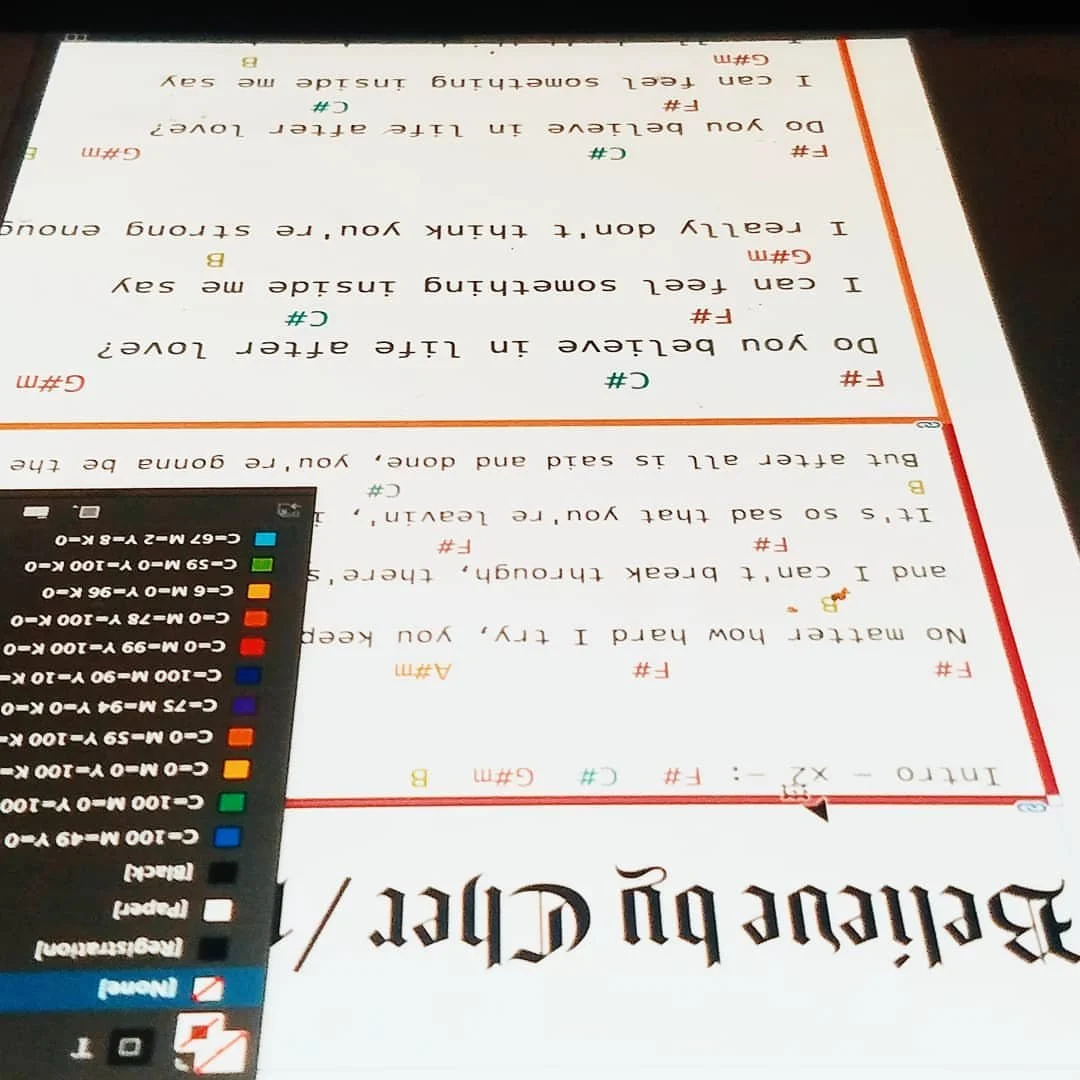 Believe by Cher /
Intro - x2 -: F# C# G#m B
F# F# A#m
No matter how hard I try, you keep
B
and I can't break through, there's
F# F#
It's so sad that you're leavin', i
B C#
But after all is said and done, you're gonna be the
F# C# G#m
Do you believe in life after love?
F# C#
I can feel something inside me say
G#m B
I really don't think you're strong enoug
F# C# G#m B
Do you believe in life after love?
F# C#
I can feel something inside me say
G#m B
T
[None]
[Registration]
[Paper]
[Black]
C=100 M=49 Y=0
C=100 M=0 Y=100
C=0 M=0 Y=100 K=
C=0 M=59 Y=100 K=
C=75 M=94 Y=0 K=0
C=100 M=90 Y=10 K=
C=0 M=99 Y=100 K=0
C=0 M=78 Y=100 K=0
C=6 M=0 Y=96 K=0
C=59 M=0 Y=100 K=0
C=67 M=2 Y=8 K=0